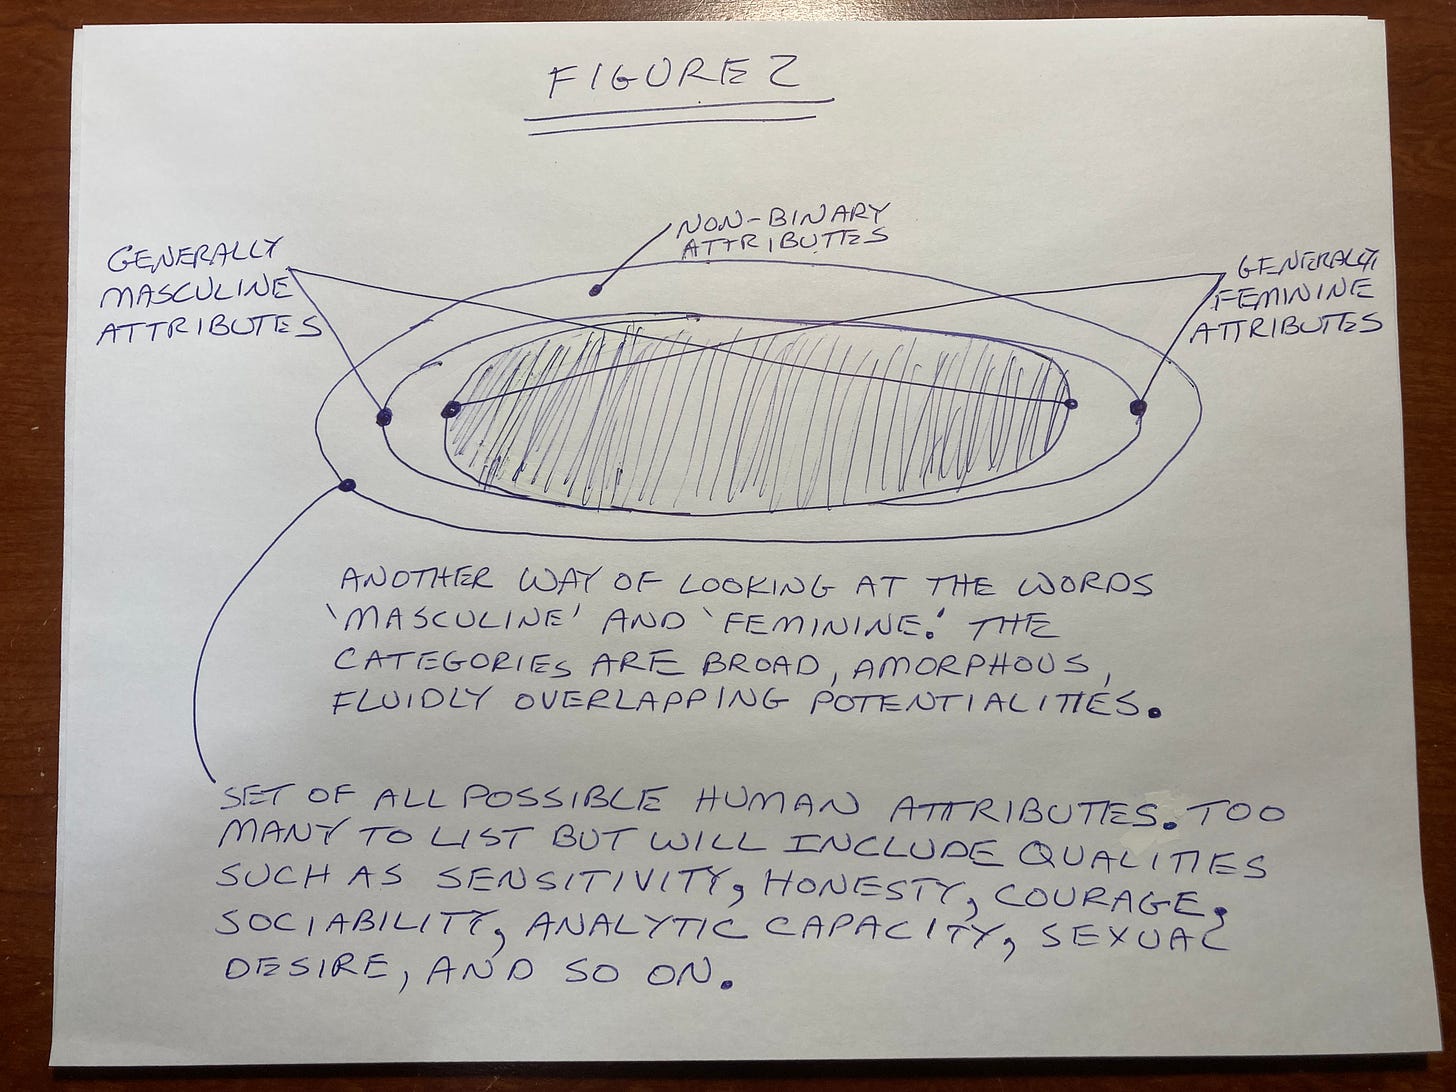 FIGURE 2
NON-BINARY
ATTRIBUTES
GENERALLY
MASCULINE
ATTRIBUTES
GENERALLY
FEMININE
ATTRIBUTES
ANOTHER WAY OF LOOKING AT THE WORDS
'MASCULINE' AND 'FEMININE.' THE
CATEGORIES ARE BROAD, AMORPHOUS,
FLUIDLY OVERLAPPING POTENTIALITIES.
SET OF ALL POSSIBLE HUMAN ATTRIBUTES. TOO
MANY TO LIST BUT WILL INCLUDE QUALITIES
SUCH AS SENSITIVITY, HONESTY, COURAGE,
SOCIABILITY, ANALYTIC CAPACITY, SEXUAL
DESIRE, AND SO ON.